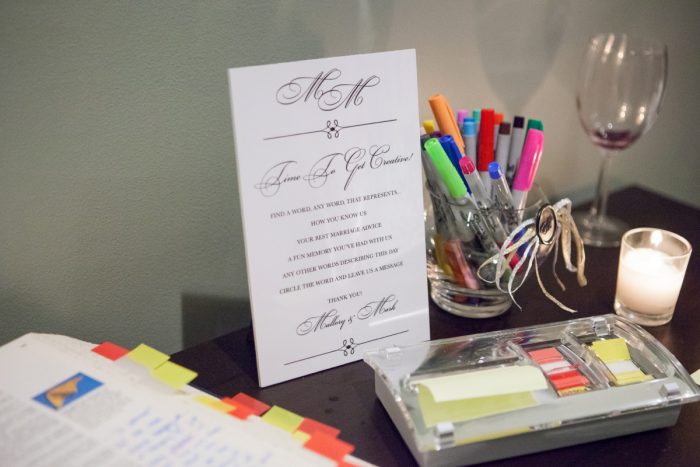 MM
Time To Get Creative!
FIND A WORD, ANY WORD, THAT REPRESENTS..
HOW YOU KNOW US
YOUR BEST MARRIAGE ADVICE
A FUN MEMORY YOU'VE HAD WITH US
ANY OTHER WORDS DESCRIBING THIS DAY
CIRCLE THE WORD AND LEAVE US A MESSAGE
THANK YOU!
Mallory & Mark